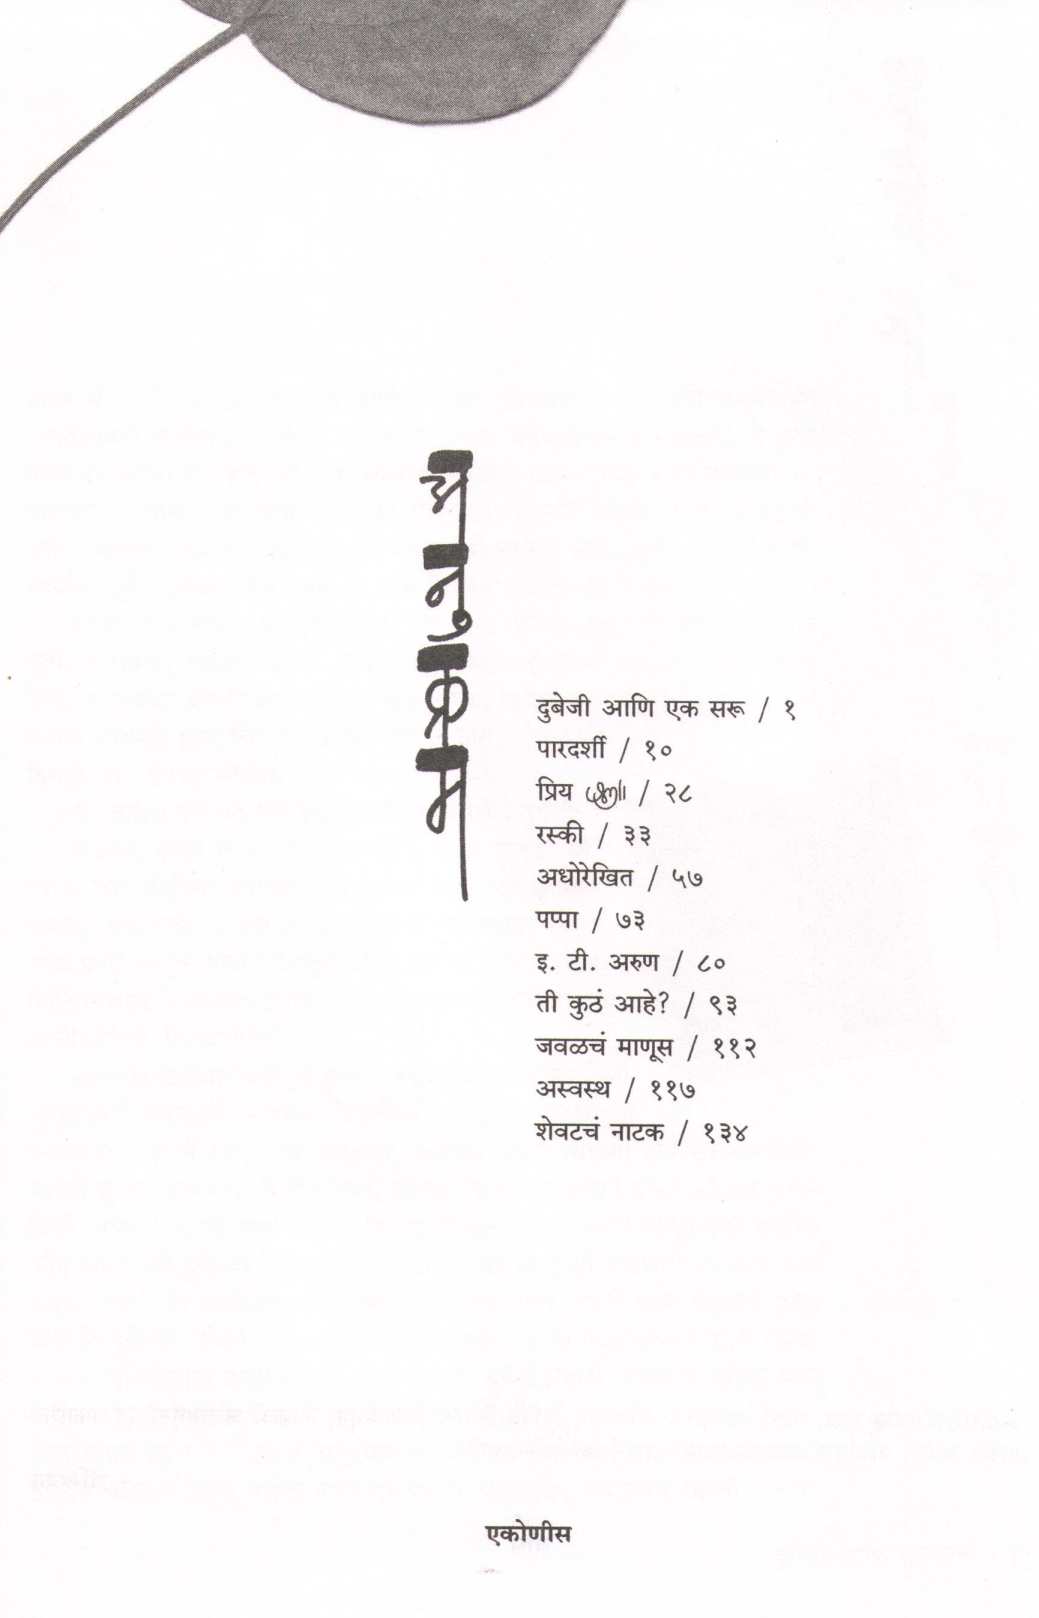 अनुक्रम
दुबेजी आणि एक सरू / १
पारदर्शी / १०
प्रिय / २८
रस्की / ३३
अधोरेखित / ५७
पप्पा / ७३
इ. टी. अरुण / ८०
ती कुठं आहे? / ९३
जवळचं माणूस / ११२
अस्वस्थ / ११७
शेवटचं नाटक / १३४
एकोणीस